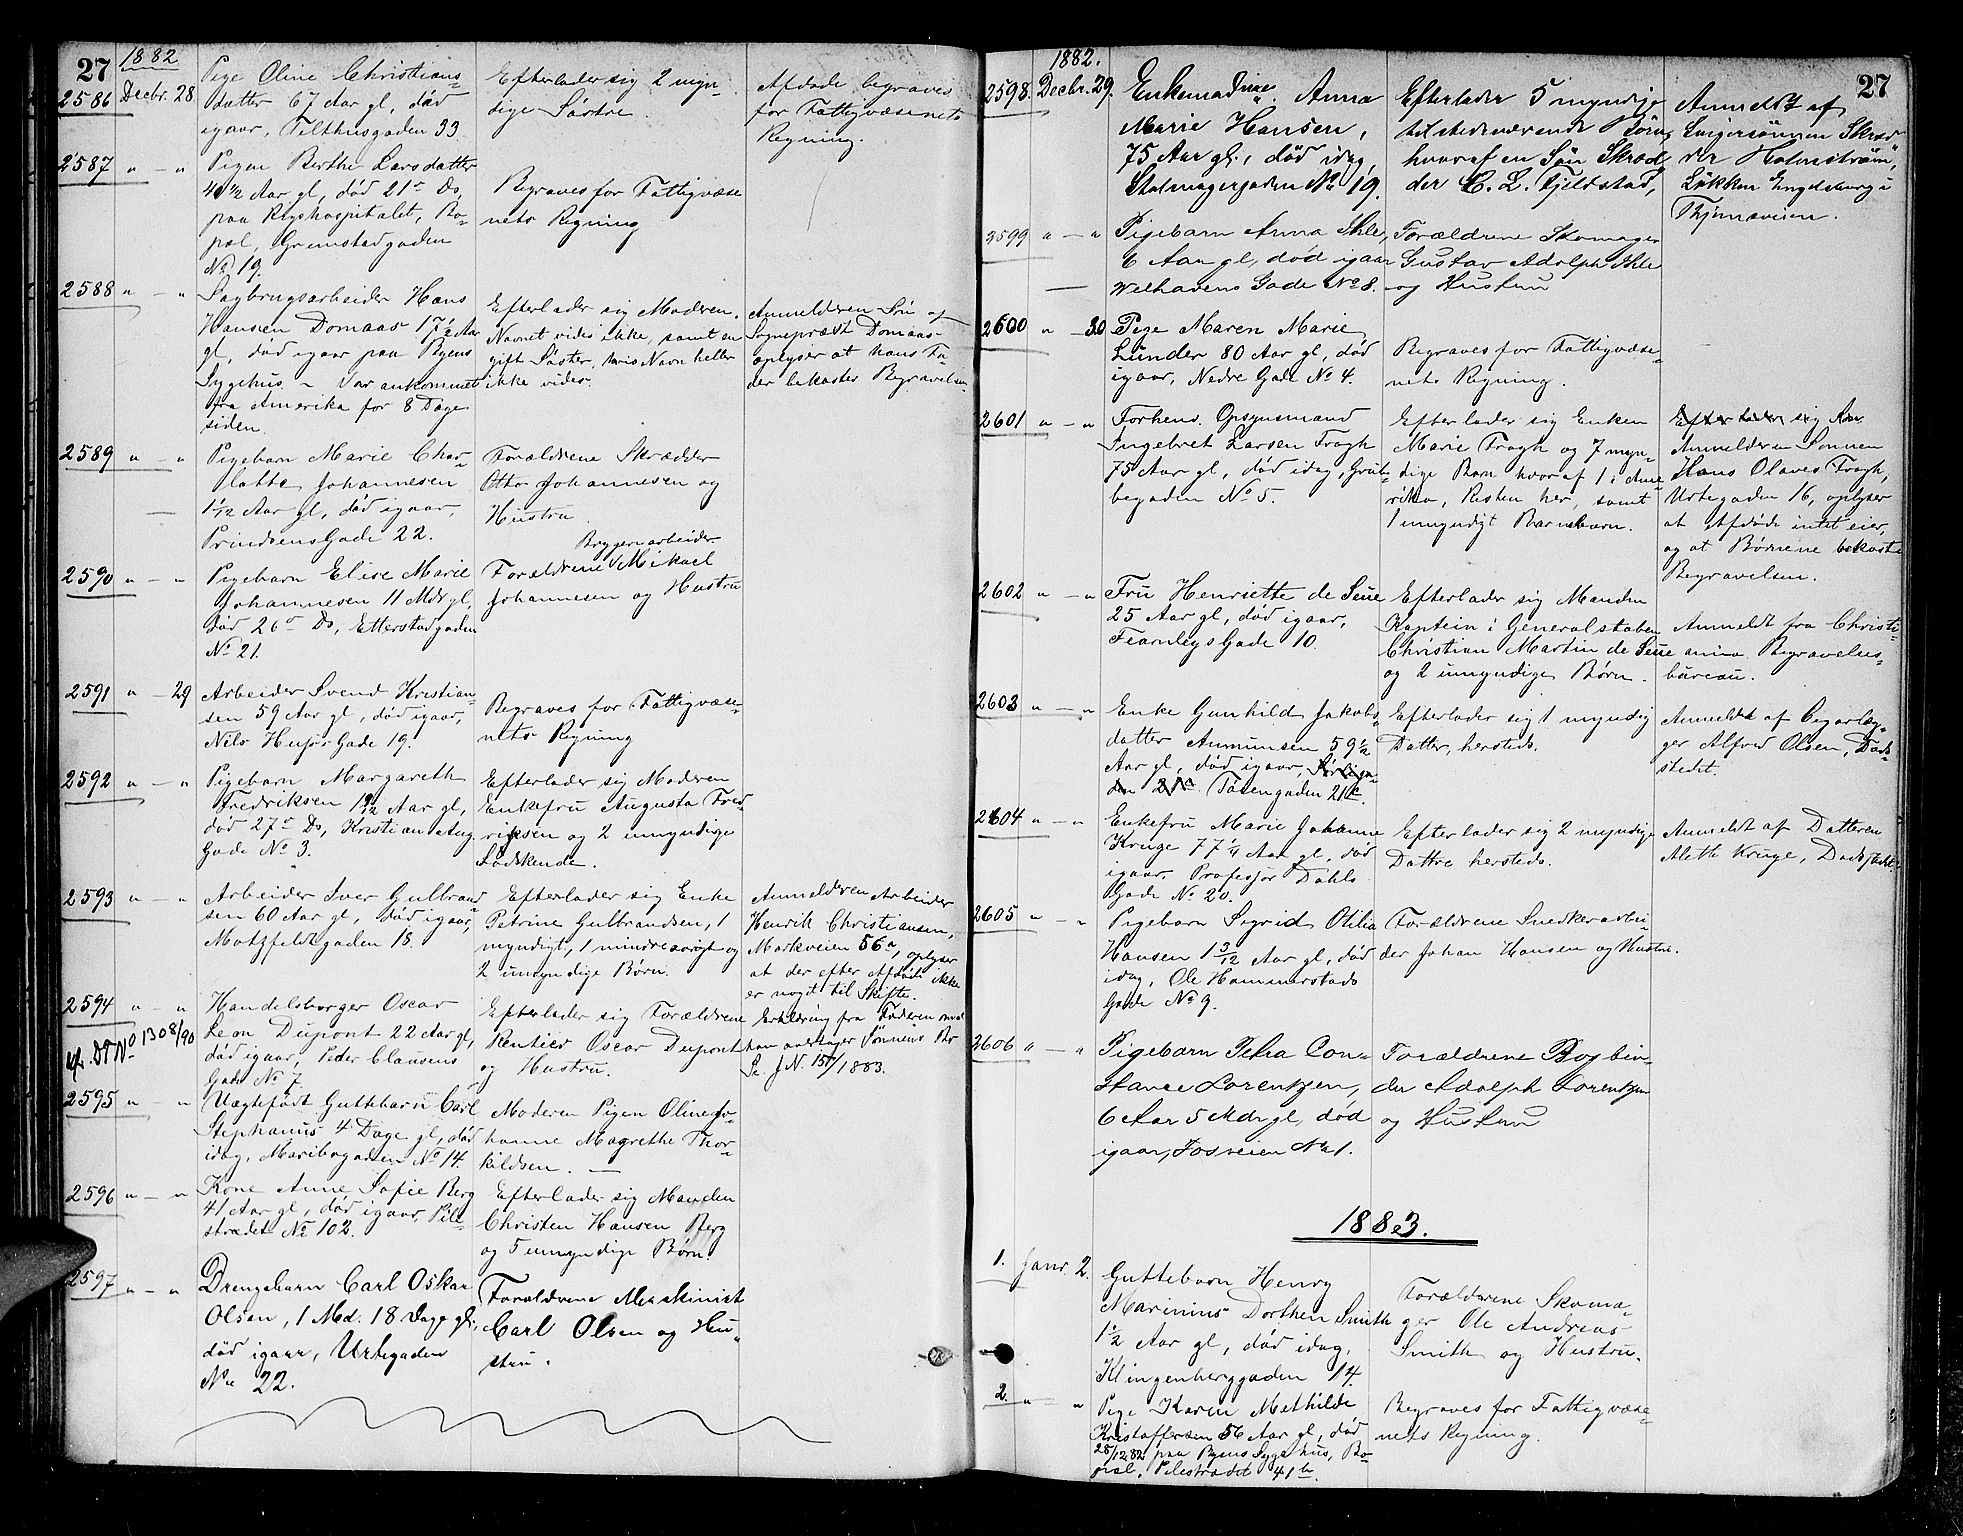 27
1882
2586 Decbr. 28.
Pige Oline Christians-
datter 67 Aar gl, død
igaar, Tilthusgaden 33
Efterlader sig 2 myn-
dige Søstre.
Afdøde begraves
for Fattigvæsenets
Regning.
2587 " — "
Pigen Berthe Larsdatter
4 1/2 Aar gl, død 21de Ds,
paa Rigshospitalet, Bo-
pæl, Grimstadgaden
No 19.
Begraves for Fattigvæse
nets Regning
2588 " — "
Sagbrugsarbeider Hans
Hansen Domaas 17 1/2 Aar
gl, død igaar paa Byens
Sygehus, – var ankommet
fra Amerika for 8 Dage
siden.
Efterlader sig Moderen,
Navnet vides ikke, samt en
gift Søster, hvis Navn heller
ikke vides.
Anmelderen Søn af
Sogneprest Domaas
oplyser at hans Fa-
der bekoster Begravelsen
2589 " — "
Pigebarn Marie Char-
lotte Johannesen
1 1/12 Aar gl, død igaar,
Prindsens Gade 22.
Forældrene Skrædder
Otto Johannesen og
Hustru
2590 " — "
Pigebarn Elise Marie
Johannesen 11 Mdr gl,
død 26de Ds, Etterstadgaden
No 21.
Bryggeriarbeider
Forældrene Mikael
Johannesen og Hustru
2591 " — 29
Arbeider Svend Kristian-
sen 59 Aar gl, død igaar,
Nils Huus Gade 19.
Begraves for Fattigvæse-
nets Regning
2592 " — "
Pigebarn Margareth
Fredriksen 1 9/12 Aar gl,
død 27de Ds, Kristian Aug.
Gade No 3.
Efterlader sig Moderen
Enkefru Augusta Fred-
riksen og 2 umyndige
Sødskende.
2593 " — "
Arbeider Iver Gulbrand
sen 60 Aar gl, død igaar,
Motzfeldtgaden 18.
Efterlader sig Enke
Petrine Gulbrandsen, 1
myndigt, 1 mindreaarigt og
2 umyndige Børn.
Anmelderen Arbeider
Henrik Christiansen,
Markveien 56a, oplyser
at der efter Afdøde ikke
er noget til Skifte.
2594 " — "
cf. DP No 1308/90
Handelsborger Oscar
Leon Dupont 22 Aar gl,
død igaar, Peder Clausens
Gade No 7.
Efterlader sig Forældrene
Rentier Oscar Dupont
og Hustru.
Erklæring fra Faderen om at
han overtager Sønnens Bo
Se J.N. 15/1883.
2595 " — "
Uægtefødt Guttebarn Carl
Stephanus 4 Dage gl, død
idag, Maribogaden No 14.
Moderen Pigen Oline Jo-
hanne Magrethe Thor-
kildsen. —
2596 " — "
Kone Anne Sofie Berg
41 Aar gl, død igaar, Pile-
strædet No 102.
Efterlader sig Manden
Christen Hansen Berg
og 5 umyndige Børn.
2597 " — "
Drengebarn Carl Oskar
Olsen, 1 Md. 18 Dage gl.,
död igaar, Urtegaden
No 22.
Forældrene Maskinist
Carl Olsen og Hu-
stru.
27
1882.
2598. Decbr. 29.
Enkemadme. Anna
Marie Hansen,
75 Aar gl., død idag,
Stolmagergaden No 19.
Efterlader 5 myndige
tilstedeværende Börn,
hvoraf en Sön Skræd
der C. L. Fjeldstad,
Anmeldt af
Svigersönnen Skræd
der Holmström,
Løkken Engelsborg i
Thjömeveien.
2599 " — "
Pigebarn Anna Ihle,
6 Aar gl, død igaar
Welhavens Gade No 8.
Forældrene Skomager
Gustav Adolph Ihle
og Hustru
2600 " — 30
Pige Maren Marie
Lunder 80 Aar gl, død
igaar, Nedre Gade No 4.
Begraves for Fattigvæse-
nets Regning.
2601 " — "
Forhenv. Opsynsmand
Ingebret Larsen Fragh
75 Aar gl, død idag, Grub-
begaden No 5.
Efterlader sig Enken
Marie Fragh og 7 myn-
dige Børn hvoraf 1 i Ame-
rika, Resten her, samt
1 umyndigt Barnebarn.
Efterlader sig An
Anmelderen Sønnen
Hans Olaves Fragh,
Urtegaden 16, oplyser
at Afdøde intet eier,
og at Børnene bekoste
Begravelsen.
2602 " — "
Fru Henriette de Seue
25 Aar gl, død igaar,
Fearnleys Gade 10.
Efterlader sig Manden
Kaptein i Generalstaben
Christian Martin de Seue
og 2 umyndige Børn.
Anmeldt fra Christi-
ania Begravelses-
bureau.
2603 " — "
Enke Gunhild Jakobs-
datter Amundsen 59 1/2
Aar gl, død igaar,
Tøiengaden 21c.
Efterlader sig 1 myndig
Datter, hersteds.
Anmeldt af Cigarlæg-
ger Alfred Olsen, Døds-
stedet.
2604 " — "
Enkefru Marie Johanne
Kruge 77 1/4 Aar gl, død
igaar, Professor Dahls
Gade No 20.
Efterlader sig 2 myndige
Døttre hersteds.
Anmeldt af Datteren
Aleth Kruge, Dødsstedet.
2605 " — "
Pigebarn Sigrid Otilia
Hansen 1 3/12 Aar gl, død
idag, Ole Hammerstads
Gade No 9.
Forældrene Snedkerarbei-
der Johan Hansen og Hustru.
2606 " — "
Pigebarn Petra Con-
stance Lorentzen,
6 Aar 5 Mdr gl, død
igaar, Fosveien No 1.
Forældrene Bogbin-
der Adolph Lorentzen
og Hustru
1883.
1. Janr. 2.
Guttebarn Henry
Marinius Dorthen Smith
1 1/2 Aar gl, død idag,
Klingenberggaden 14.
Forældrene Skoma-
ger Ole Andreas
Smith og Hustru.
2. " — "
Pige Karen Mathilde
Kristoffersen 56 Aar gl, død
28/12 82 paa Byens Sygehus, Bo-
pæl, Pilestrædet 41b.
Begraves for Fattigvæse-
nets Regning.